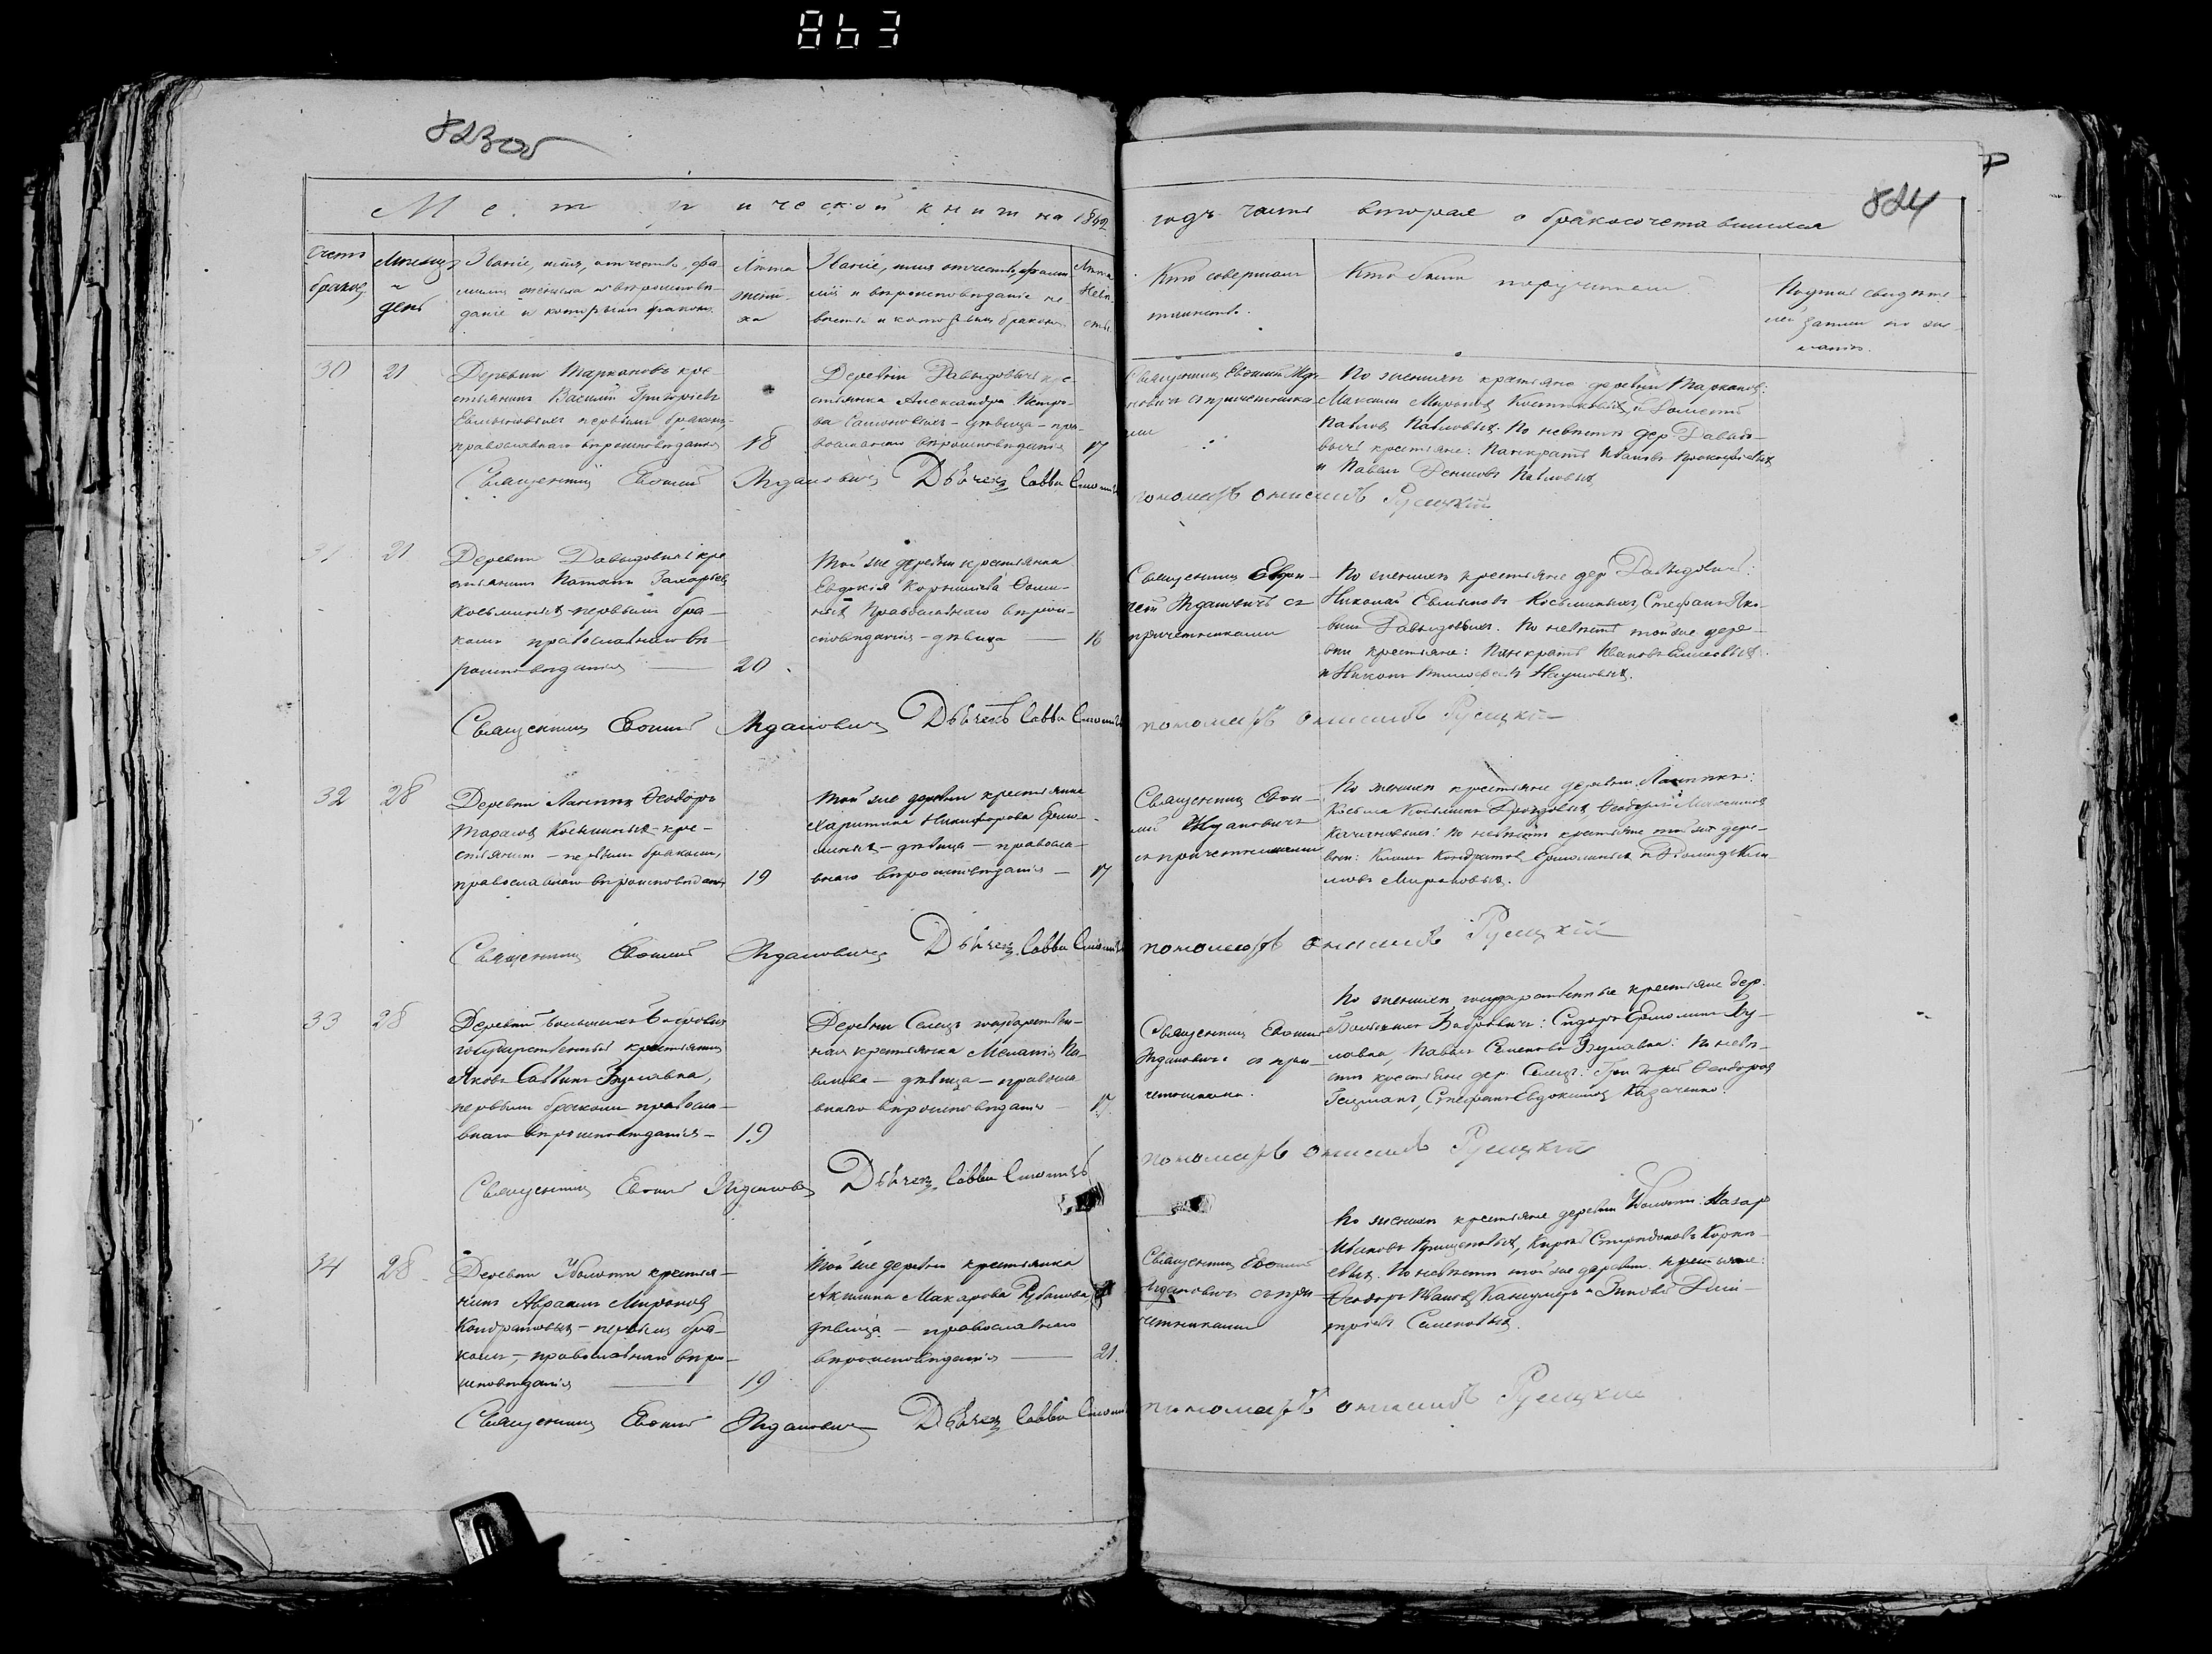 863
823об
824
Метрической книги на 1842
годъ часть вторая о бракосочетавшихся
Счетъ
браковъ
Мѣсяцъ
и
день
Званіе, имя, отчество, фа-
милія жениха и вѣроисповѣ-
даніе и которымъ бракомъ
Лѣта
жени-
ха
Званіе, имя отчество, фами
лія и вѣроисповѣданіе не-
вѣсты и которымъ бракомъ
Лѣта
невѣ-
сты
Кто совершалъ
таинство.
Кто были поручители
Подпись свидѣте-
лей записи по же-
ланію.
30
21
Деревни Тарканова кре-
стьянинъ Василій Григорьевъ
первымъ бракомъ
православнаго вѣроисповѣданія
18
Деревни Давыдовичъ кре-
стьянка Александра Петро-
ва дѣвица - пра-
вославнаго вѣроисповѣданія
17
Священникъ Евфимій Жда-
новичъ съ причетника-
ми
По женихѣ крестьяне деревни Тарканова:
Максимъ Мироновъ и
Павловъ Павловыхъ. По невѣстѣ дер. Давыдо-
вичъ крестьяне: Панкратъ Ивановъ Прокофьевыхъ
и Павелъ Денисовъ Павловыхъ
Священникъ Евфимій Ждановичъ Дьячекъ Савва
пономарь Онисимъ Русецкій
31
21
Деревни Давыдовичъ кре
стьянинъ Потапъ Захарьевъ
Косьминыхъ первымъ бра-
комъ православнаго вѣ-
роисповѣданія
20
Той же деревни крестьянка
Евдокія Корнильева Фоми-
ныхъ Православнаго вѣрои-
сповѣданія - дѣвица
16
Священникъ Евфи-
мій Ждановичъ съ
причетниками
По женихѣ крестьяне дер Давыдовичъ:
Николай Косьминыхъ, Стефанъ Яко-
влевъ Давыдовыхъ. По невѣстѣ той же дере-
вни крестьяне: Панкратъ Ивановъ
и Никонъ Тимофеевъ Наумовыхъ.
Священникъ Евфимій Ждановичъ Дьячекъ Савва
пономарь Онисимъ Русецкій
32
28
Деревни Феодоръ
Тарасовъ Косьминыхъ кре-
стьянинъ - первымъ бракомъ,
православнаго вѣроисповѣданія
19
Той же деревни крестьянка
Харитина Никифорова Ермо-
линыхъ - дѣвица - правосла-
внаго вѣроисповѣданія
17
Священникъ Евфи-
мій Ждановичъ
съ причетниками
По женихѣ крестьяне деревни
Косьма Косьминъ Дроздовыхъ, Феодоръ Максимовъ
По невѣстѣ крестьяне той же дере-
вни: Климъ Кондратовъ Ермолиныхъ и Кли-
мовъ Мироновыхъ.
Священникъ Евфимій Ждановичъ Дьячекъ Савва
пономарь Онисимъ Русецкій
33
28
Деревни Большихъ Бобровичъ
государственный крестьянинъ
Яковъ Саввинъ Булавка,
первымъ бракомъ правосла-
внаго вѣроисповѣданія
19
Деревни Селецъ государствен-
ная крестьянка Меланія Па-
влова - дѣвица - правосла
внаго вѣроисповѣданія
17
Священникъ Евфимій
Ждановичъ съ при-
четниками.
По женихѣ государственные крестьяне дер.
Большихъ Бобровичъ: Сидоръ Ермолинъ Бу-
лавка, Павелъ Семеновъ Булавка: По невѣ-
стѣ крестьяне дер. Селецъ: Григорій Феодоровъ
Гецманъ, Стефанъ Евдокимовъ Казаченко.
Священникъ Евфимій Ждановичъ Дьячекъ Савва
пономарь Онисимъ Русецкій
34
28
Деревни крестья-
нинъ Авраамъ Мироновъ
Кондратовыхъ - первымъ бра-
комъ, - православнаго вѣрои-
сповѣданія
19
Той же деревни крестьянка
Акилина Макарова
дѣвица - православнаго
вѣроисповѣданія
21.
Священникъ Евфимій
Ждановичъ съ при-
четниками
По женихѣ крестьяне деревни Назаръ
Ивановъ Спиридоновъ Корнѣ-
евыхъ. По невѣстѣ той же деревни крестьяне:
Феодоръ Ивановъ и Зиновій Дми-
тріевъ Семеновыхъ.
Священникъ Евфимій Ждановичъ Дьячекъ Савва
пономарь Онисимъ Русецкій